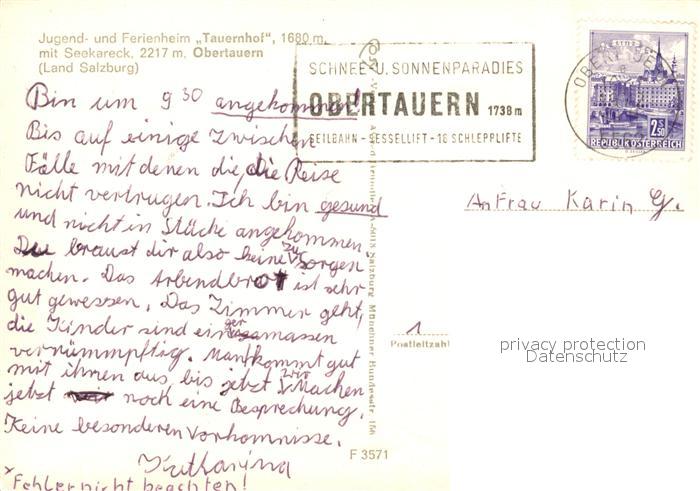 Jugend- und Ferienheim „Tauernhof", 1680 m,
mit Seekareck, 2217 m, Obertauern
(Land Salzburg)
SCHNEE- U. SONNENPARADIES
OBERTAUERN 1738 m
SEILBAHN - SESSELLIFT - 16 SCHLEPPLIFTE
OBERTAUERN
STEYR
2.50
REPUBLIK ÖSTERREICH
Bin um 9 30 angekommen!
Bis auf einige zwischen
Fälle mit denen die, die Reise
nicht vertrugen. Ich bin gesund
und nicht in Stücke angekommen
Du braust dir also keine zu sorgen
machen. Das Arbendbrot ist sehr
gut gewessen. Das Zimmer geht,
die Kinder sind einigermassen
vernümmpftig. Man kommt gut
mit ihnen aus, bis jetzt. Wir Machen
jetzt noch eine Besprechung.
Keine besonderen Vorkomnisse.
Katharina
* Fehler nicht beachten!
An Frau Karin G.
1
Postleitzahl
5013 Salzburg Münchner Bundesstr. 156
F 3571
privacy protection
Datenschutz